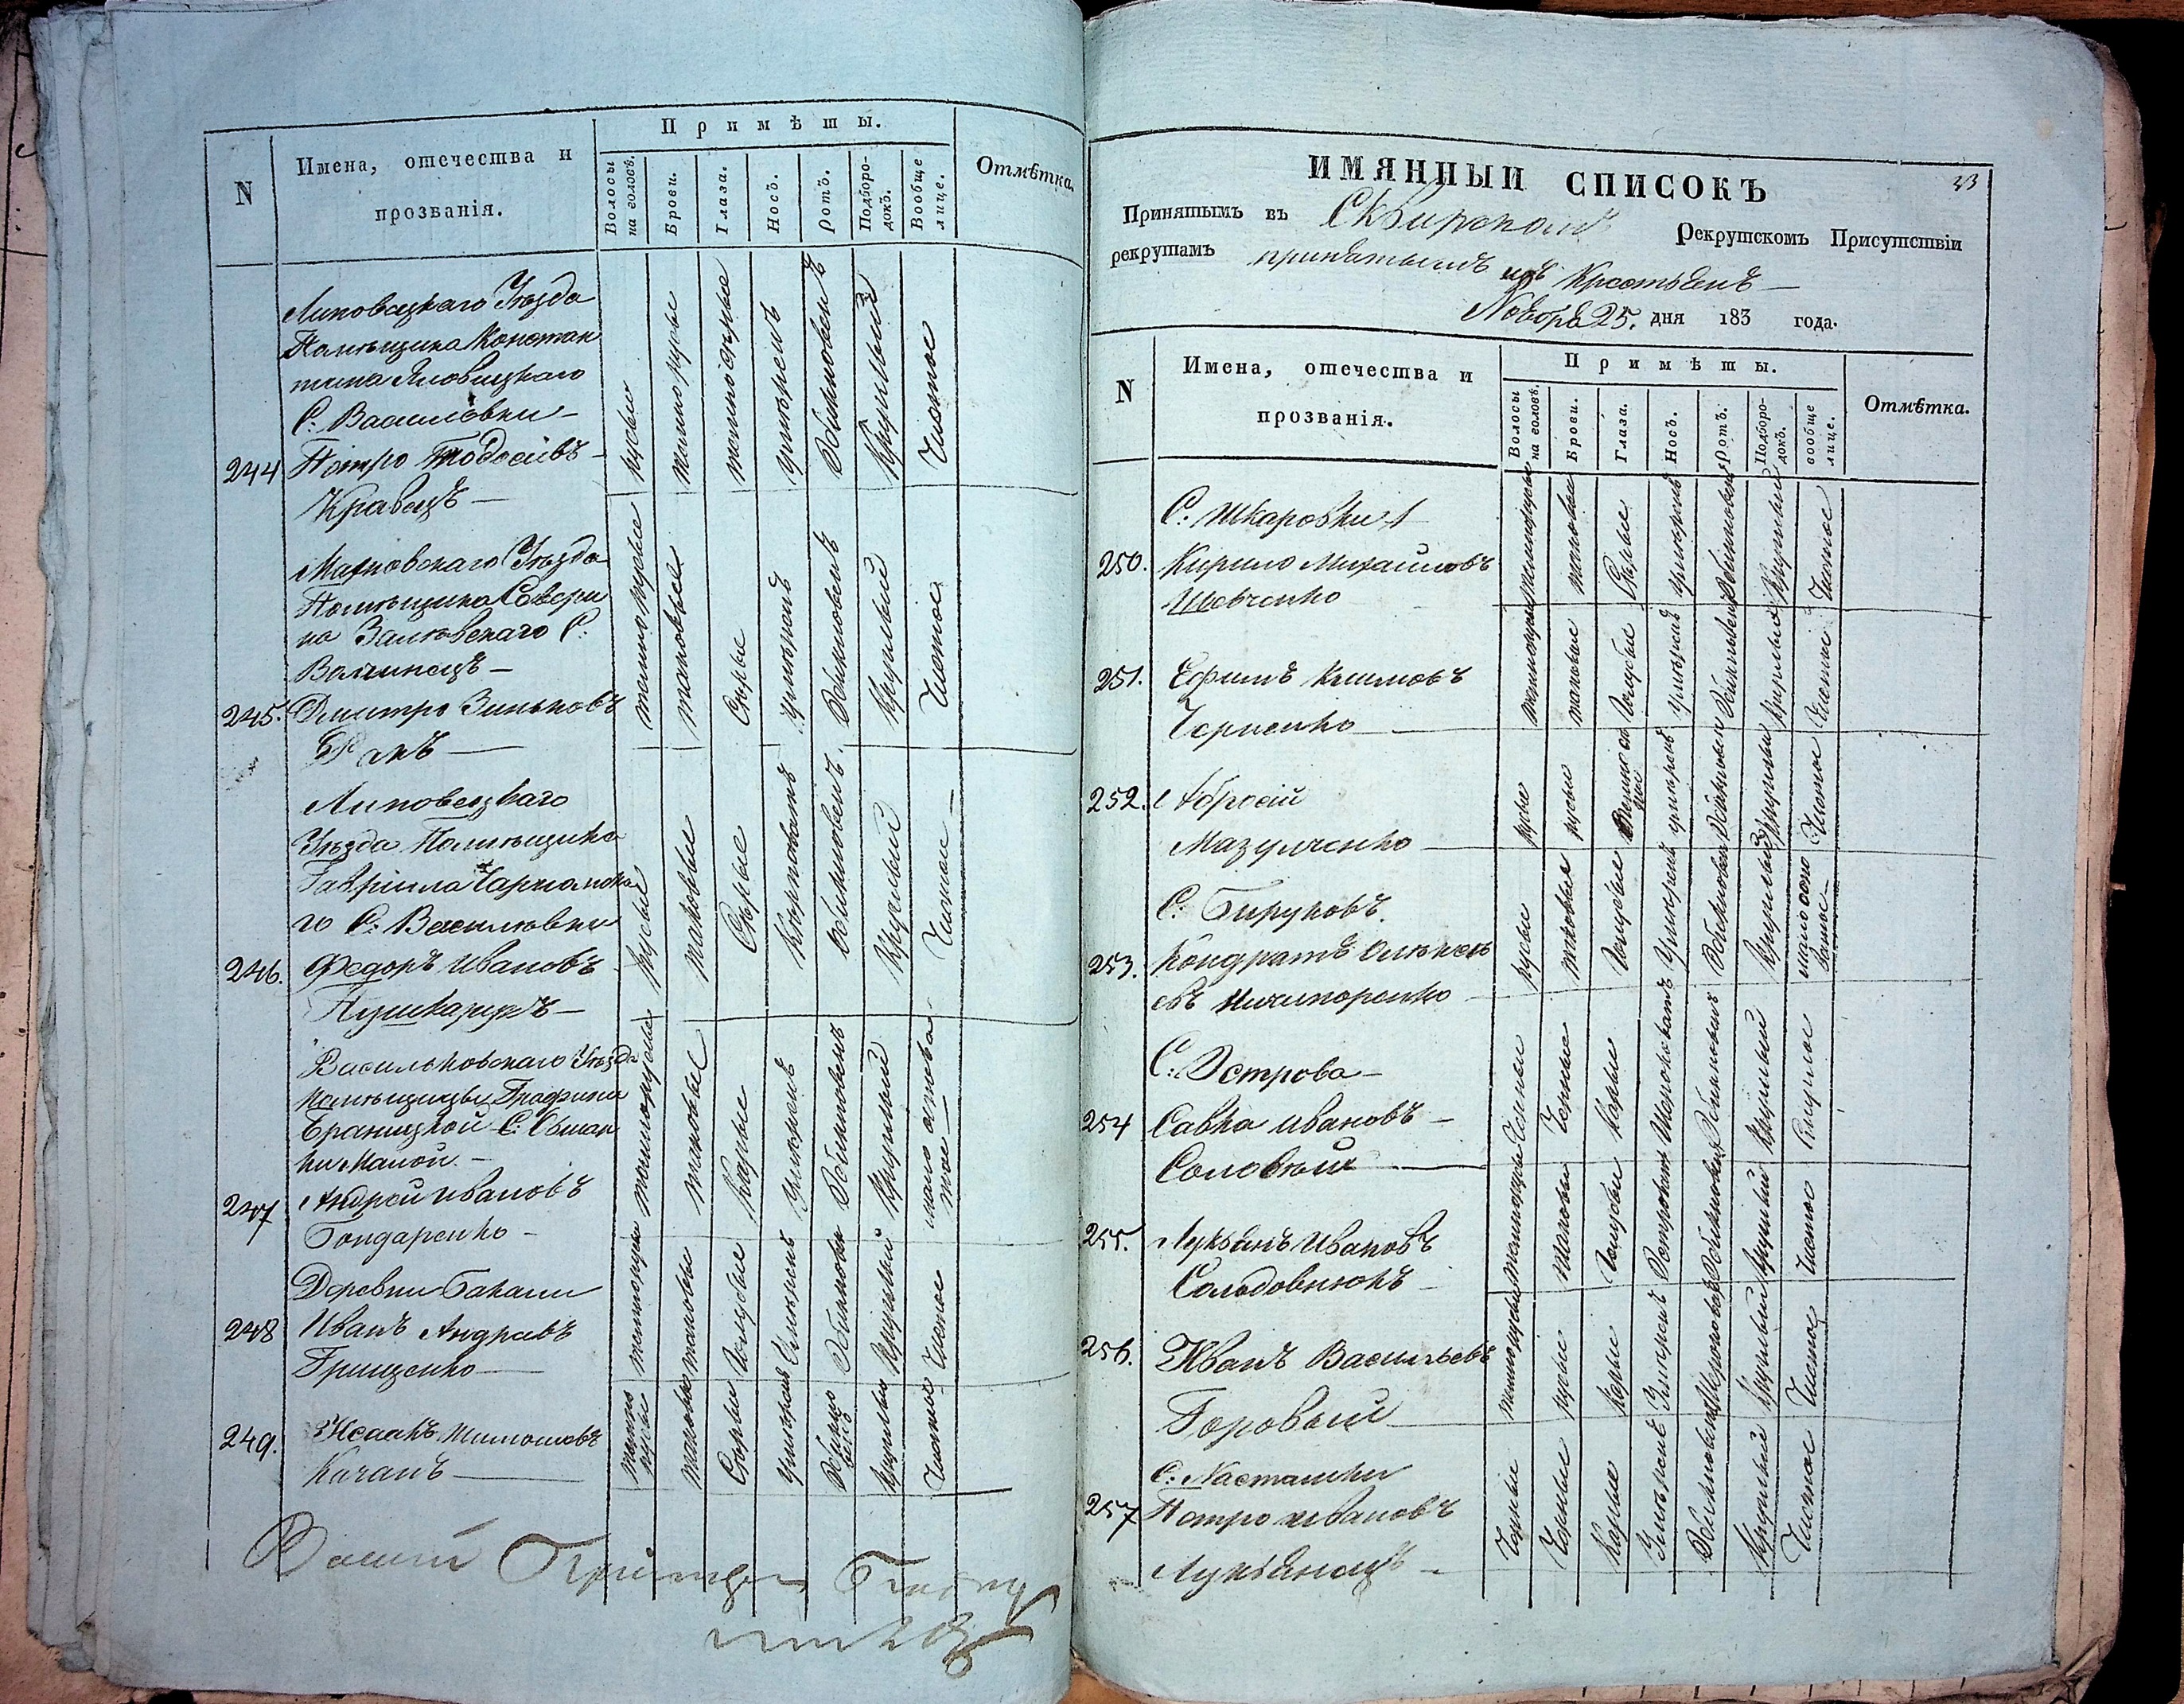 N
Имена, отечества и
прозванія.
Примѣты.
Волосы на головѣ.
Брови.
Глаза.
Носъ.
Ротъ.
Подбородокъ.
Вообще лице.
Отмѣтка.
Липовецкаго Уѣзда
Помѣщика Констан
тина Яловицкаго
С: Василевки
244 Петро Тодосіевъ
Кравецъ
русы
темнорусы
темносѣрые
умѣренъ
Обикновенъ
Круглый
Чистое
Махновскаго Уѣзда
Помѣщика Севери
на Залевскаго С:
Волчинецъ
245. Дмитро Зиньковъ
темнорусые
таковые
Сѣрые
умѣренъ
Обикновенъ
Круглый
Чистое
Липовецкаго
Уѣзда Помѣщика
Гавріила
го С: Василювки
246. Федоръ Ивановъ
Пушкарукъ
русые
таковые
Сѣрые
Обикновенъ
Круглый
Чистое
Васильковскаго Уѣзда
помѣщицы Графини
Браницкой С:
ки Малой
247 Андрей Ивановъ
Бондаренко
темнорусые
таковые
Карые
Умѣренъ
Обикновенъ
Круглый
мало оспова
тое
Деревни Бакали
248 Иванъ Андреевъ
Грищенко
темнорусы
таковы
Голубые
Умѣренъ
Обикновен
Круглый
Чистое
249. Исаакъ Тимошовъ
Качанъ
темно
русы
таковые
Сѣрые
Умѣренъ
Обикно
венъ
Круглый
Чистое
ИМЯННЫЙ СПИСОКЪ
33
Принятымъ въ Сквирскомъ Рекрутскомъ Присутствіи
рекрутамъ принятымъ изъ Крестьянъ
Ноября 25. дня 183 года.
N
Имена, отечества и
прозванія.
Примѣты.
Волосы на головѣ.
Брови.
Глаза.
Носъ.
Ротъ.
Подбородокъ.
вообще лице.
Отмѣтка.
С: Шкаровки
250. Кирило Михайловъ
Шевченко
темнорусые
таковые
Сѣрые
умѣренъ
Обикновенъ
Круглый
Чистое
251. Ефимъ Климовъ
Черненко
темнорусы
таковые
Голубые
Умѣренъ
Обикновенъ
Круглый
Чистое
252.
Мазурченко
русы
русы
умѣренъ
Обикновен
Круглый
Чистое
С. Бируковъ.
253. Кондратъ Олексе
евъ Ничипоренко
русы
таковые
Голубые
Умѣренъ
Обикновен
Круглый
мало оспо
ватое
С: Острова
254 Савка Ивановъ
Соловьй
Чорные
Чорные
Карые
Широковатъ
Обикновенъ
Круглый
255. Лукьянъ Ивановъ
Сольдовнюкъ
темнорусы
таковы
Голубы
Островатъ
Обикновен
Круглый
Чистое
256. Иванъ Васильевъ
Боровый
темнорусы
русые
Карые
Умѣренъ
Круглый
Чистое
С. Насташки
257 Петро Ивановъ
Лукьянецъ
Чорные
Чорные
Карые
Умѣренъ
Обикновенъ
Круглый
Чистое